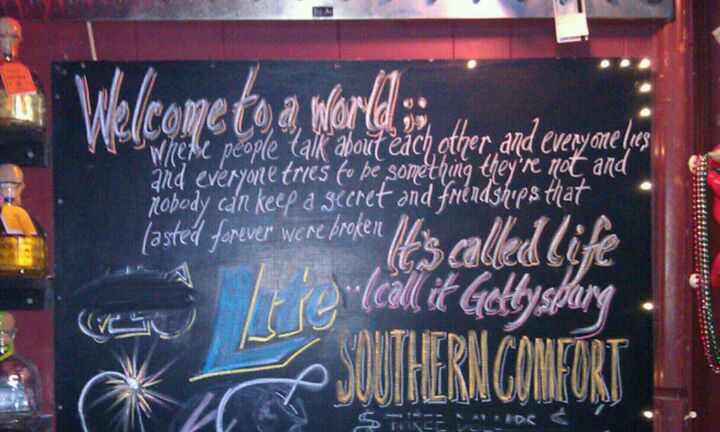 Welcome to a world ;;
where people talk about each other and everyone lies
and everyone tries to be something they're not and
nobody can keep a secret and friendships that
lasted forever were broken
It's called life
..I call it Gettysburg
Lite
SOUTHERN COMFORT
$ THREE DOLLARS $